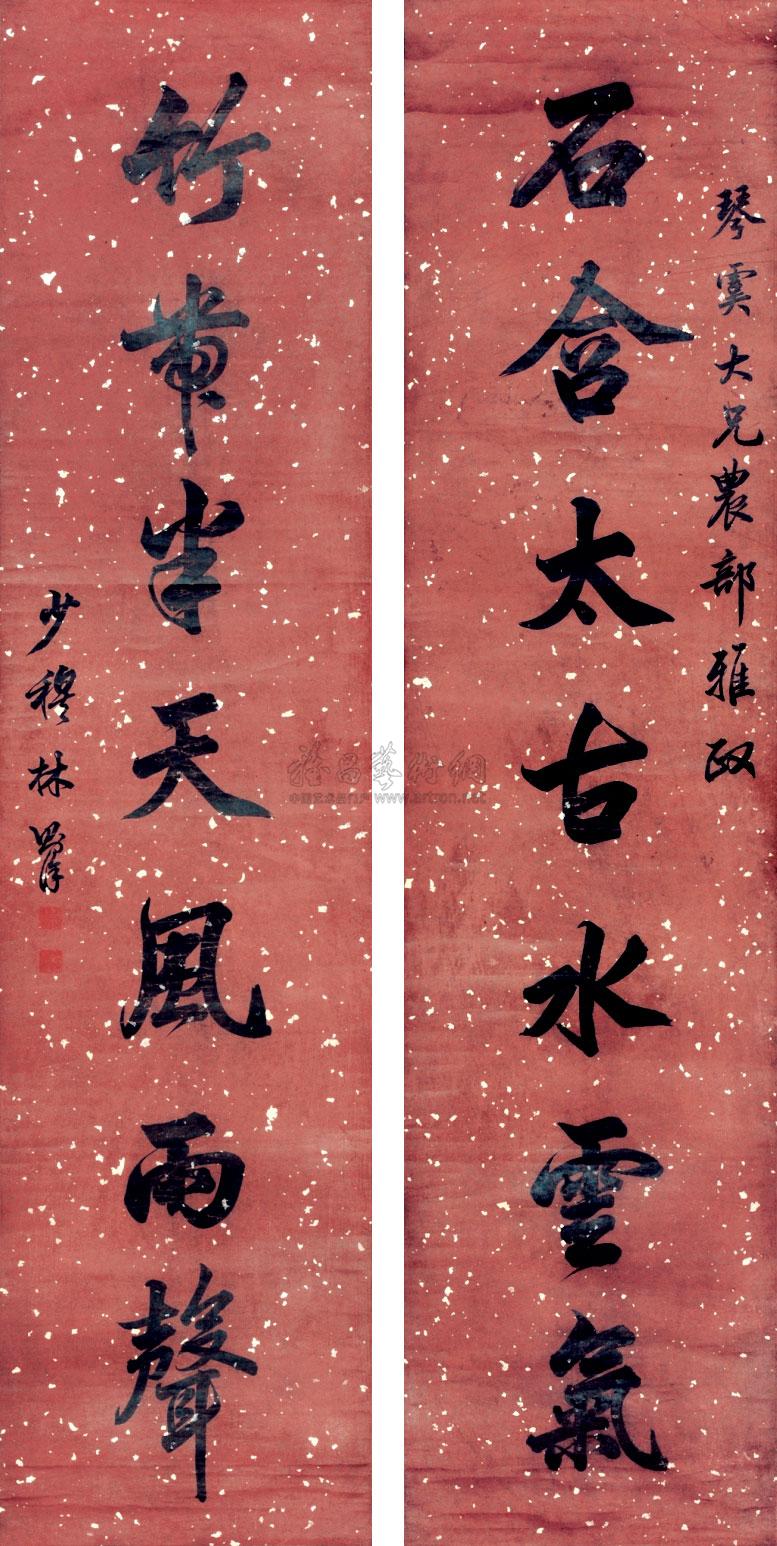 琴雲大兄農部雅政
石含太古水雲氣
竹帶半天風雨聲
少穆林則徐
www.artxun.net